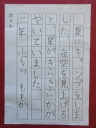 夏にキャンプをしま
した。夜空を見上げる
と、星がきらきらかが
やいていました。
二年 小くら ももか